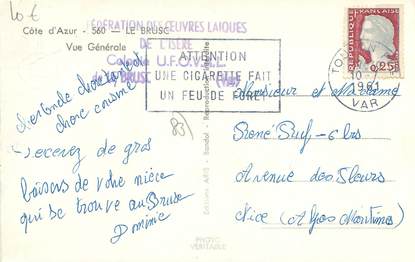 10€
Côte d'Azur - 560 - LE BRUSC
Vue Générale
FÉDÉRATION DES ŒUVRES LAIQUES
DE L'ISÈRE
Colonie U.F.O.V.A.L.
BRUSC (VAR)
ATTENTION
UNE CIGARETTE FAIT
UN FEU DE FORÊT
10-7
1961
VAR
REPUBLIQUE FRANÇAISE
0,25
Recevez de gros
baisers de votre nièce
qui se trouve au Brusc
Dominic
83
Editions ARIS - Bandol - Reproduction interdite
PHOTO
VERITABLE
Monsieur et Madame
René
Avenue des Fleurs
Nice (Alpes Maritimes)